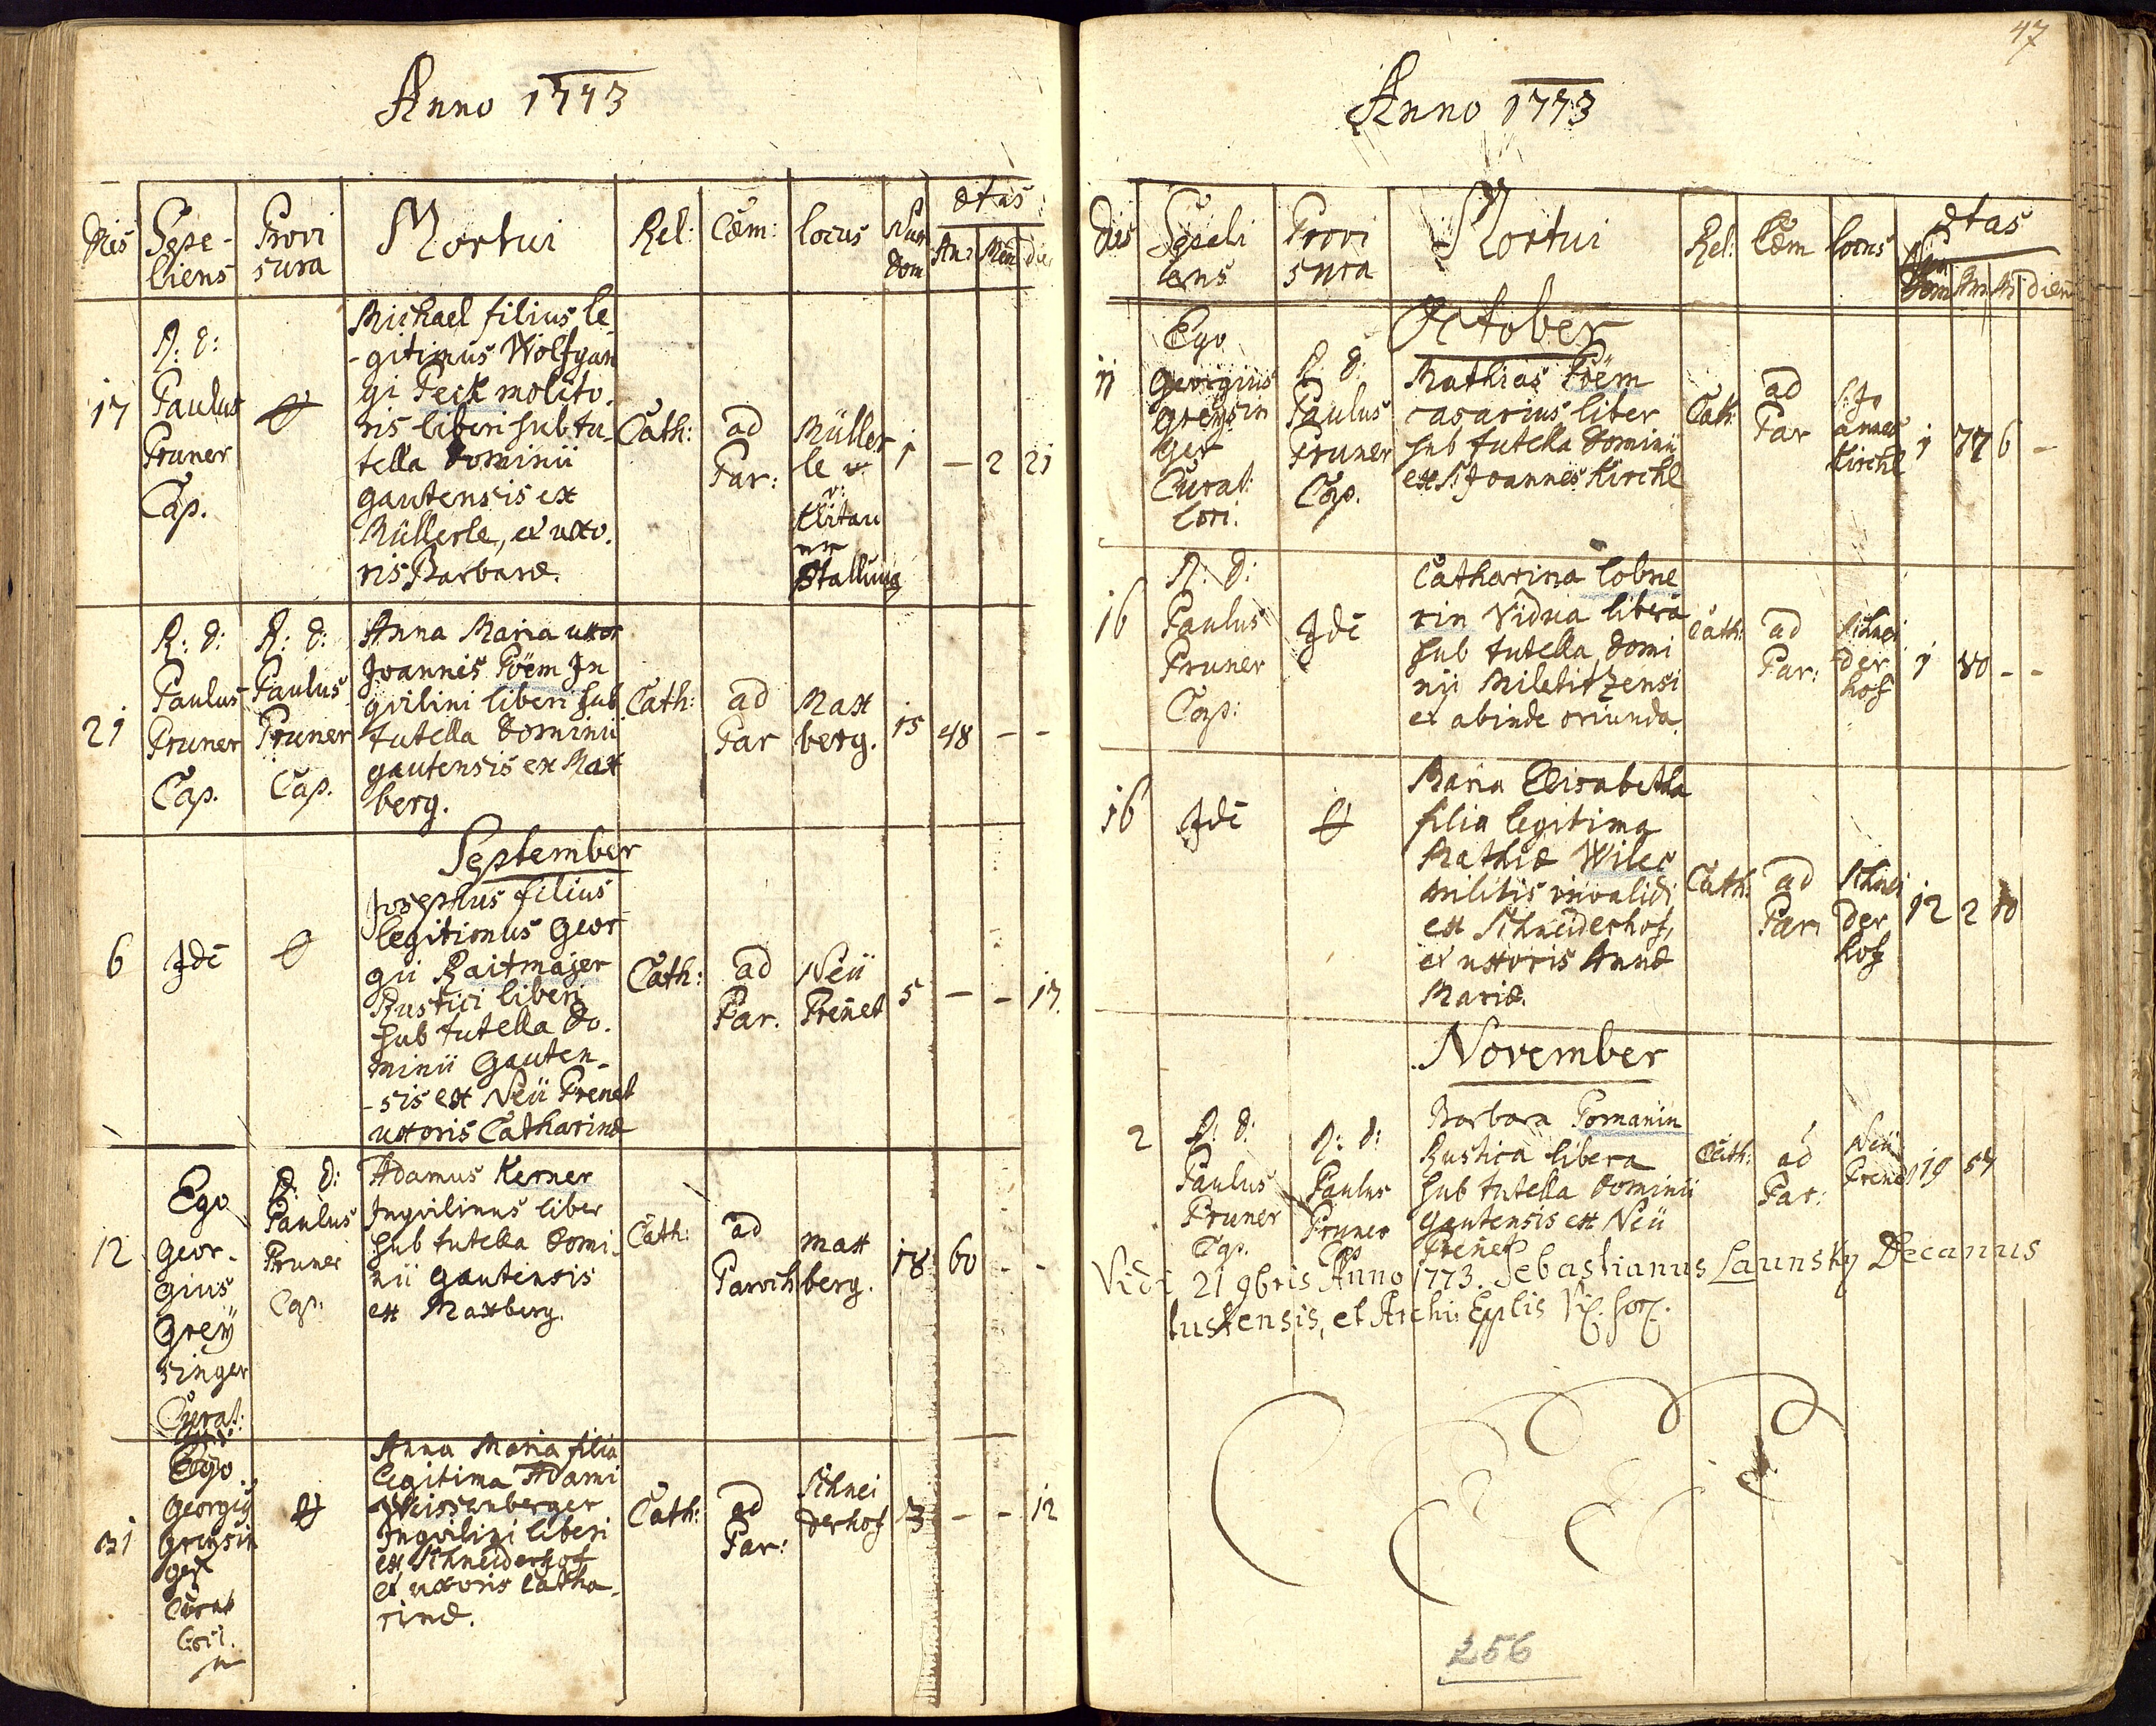 Anno 1773
Dies
Sepe-
liens
Provi
sura
Mortui
Rel:
Cœm:
locus
Num
dom
ætas
An:
Men
die
17
R: D:
Paulus
Pruner
Cap.
Michael filius le
-gitimus Wolfgan
gi Peck molito.
ris liberi sub tu-
tella Dominii
gautensis ex
Müllerle, et uxo.
ris Barbaræ.
Cath:
ad
Par:
Müller
le
v:
Stallung
1
-
2
21
21
R: D:
Paulus
Pruner
Cap.
R: D:
Paulus
Pruner
Cap.
Anna Maria uxor
Joannis Pöem In
qvilini liberi sub
tutella Dominii
gautensis ex Max
berg.
Cath:
ad
Par
Max
berg.
15
48
-
-
September
6
Idē
Josephus filius
legitimus Geor
gii Raitmajer
Rustici liberi
sub tutella Do.
minii Gauten-
-sis ex Neü Prenet
uxoris Catharinæ
Cath:
ad
Par.
Neü
Preñet
5
-
-
17.
12
Ego
Geor-
gius
Greÿ
singer
Curat:
R: D:
Paulus
Pruner
Cap:
Adamus Kerner
Inqvilinus liber
sub tutella Domi-
nii gautensis
ex Maxberg.
Cath:
ad
Paroch
Max
berg.
18
60
-
-
31
Ego
Georgig
greysin
ger
Curat
Lori.
Anna Maria filia
legitima Adami
Weissenberger
Inqvilini liberi
ex Schneiderhof
et uxoris Catha-
rinæ.
Cath:
ad
Par:
Schnei
derhof
3
-
-
12
47
Anno 1773
Dies
Sepeli
ens
Provi
sura
Mortui
Rel:
Cœm
locus
ætas
Num
Dom
An
M
dien
October
11
Ego
Georgius
greysin
ger
Curat:
Lori.
R: D:
Paulus
Pruner
Cap.
Mathias Pöem
casarius liber
sub tutella Dominii
ex S: Joannes Kirchl
Cath:
ad
Par
S: Jo
annes
Kirchl
1
77
6
-
16
R: D:
Paulus
Pruner
Cap:
Idē
Catharina Lobne
rin Vidua libera
sub tutella Domi
nii Miletitzensi
et abinde oriunda
Cath:
ad
Par:
Schnei
der
hof
1
80
-
-
16
Idē
Maria Elisabetha
filia legitima
Mathiæ Wiles
militis invalidi
ex Schneiderhof,
et uxoris Annæ
Mariæ.
Cath:
ad
Par:
Schnei
der
hof
12
2
10
November
2
R: D:
Paulus
Pruner
Cap.
R: D:
Paulus
Pruner
Cap
Barbara Pomanin
Rustica libera
sub tutella Dominii
Gautensis ex Neü
Preñet
Cath:
ad
Par:
Neü
Prenet
19
57
Vidi 21 9bris Anno 1773. Sebastianus Launsky Decanus
tustensis, et Archi Epplis Vic: for:
256